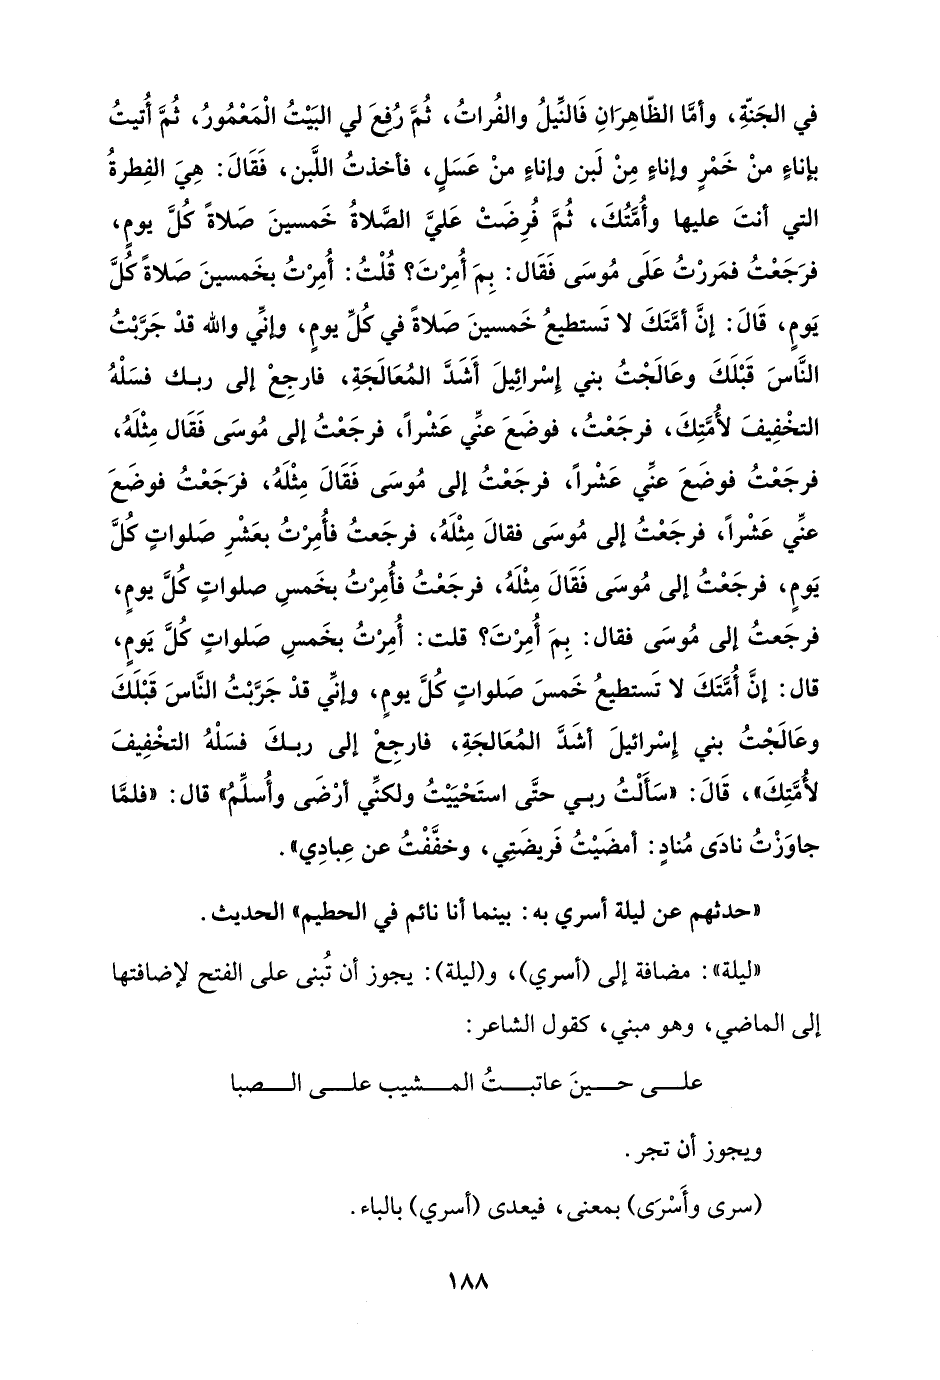 في الجَنّةِ، وأمَّا الظّاهِرَانِ فَالنِّيلُ والفُراتُ، ثُمَّ رُفِعَ لي البَيْتُ الْمَعْمُورُ، ثُمَّ أُتيتُ
بإناءٍ منْ خَمْرٍ وإناءٍ مِنْ لَبن وإناءٍ منْ عَسَلٍ، فأخذتُ اللَّبن، فَقَالَ: هِيَ الفِطرةُ
التي أنتَ عليها وأُمَّتُكَ، ثُمَّ فُرِضَتْ عَليَّ الصَّلاةُ خَمسينَ صَلاةً كُلَّ يومٍ،
فرَجَعْتُ فمَررْتُ عَلَى مُوسَى فَقَال: بِمَ أُمِرْتَ؟ قُلْتُ: أُمِرْتُ بخَمسينَ صَلاةً كُلَّ
يَومٍ، قَالَ: إنَّ أمَّتَكَ لا تَستطيعُ خَمسينَ صَلاةً في كُلِّ يومٍ، وإنِّي والله قدْ جَرَّبْتُ
النَّاسَ قَبْلَكَ وعَالَجْتُ بني إِسْرائيلَ أَشَدَّ المُعَالَجَةِ، فارجِعْ إلى ربـك فسَلْهُ
التخْفِيفَ لأُمَّتِكَ، فرجَعْتُ، فوضَعَ عنِّي عَشْراً، فرجَعْتُ إلى مُوسَى فَقَال مِثْلَهُ،
فرجَعْتُ فوضَعَ عَنِّي عَشْراً، فرجَعْتُ إلى مُوسَى فَقَالَ مِثْلَهُ، فرَجَعْتُ فوضَعَ
عنِّي عَشْراً، فرجَعْتُ إلى مُوسَى فقالَ مِثْلَهُ، فرجَعتُ فأُمِرْتُ بعَشْرِ صَلواتٍ كُلَّ
يَومٍ، فرجَعْتُ إلى مُوسَى فَقَالَ مِثْلَهُ، فرجَعْتُ فأُمِرْتُ بخَمسِ صلواتٍ كُلَّ يومٍ،
فرجَعتُ إلى مُوسَى فقال: بِمَ أُمِرْتَ؟ قلت: أُمِرْتُ بخَمسِ صَلواتٍ كُلَّ يَومٍ،
قال: إنَّ أُمَّتَكَ لا تَستطيعُ خَمسَ صَلواتٍ كُلَّ يومٍ، وإنِّي قدْ جَرَّبْتُ النَّاسَ قَبْلَكَ
وعَالَجْتُ بني إِسْرائيلَ أشَدَّ المُعَالجَةِ، فارجِعْ إلى ربـكَ فسَلْهُ التخْفِيفَ
لأُمَّتِكَ»، قَالَ: «سَأَلْتُ ربـي حتَّى استَحْيَيْتُ ولكنِّي أرْضَى وأُسلِّمُ» قال: «فلمَّا
جاوَزْتُ نادَى مُنادٍ: أمضَيْتُ فَريضَتِي، وخفَّفْتُ عن عِبادِي».
«حدثهم عن ليلة أسري به: بينما أنا نائم في الحطيم» الحديث.
«ليلة»: مضافة إلى (أسري)، و(ليلة): يجوز أن تُبنى على الفتح لإضافتها
إلى الماضي، وهو مبني، كقول الشاعر:
علـى حـينَ عاتبـتُ المـشيب علـى الـصبا
ويجوز أن تجر.
(سرى وأَسْرَى) بمعنى، فيعدى (أسري) بالباء.
١٨٨